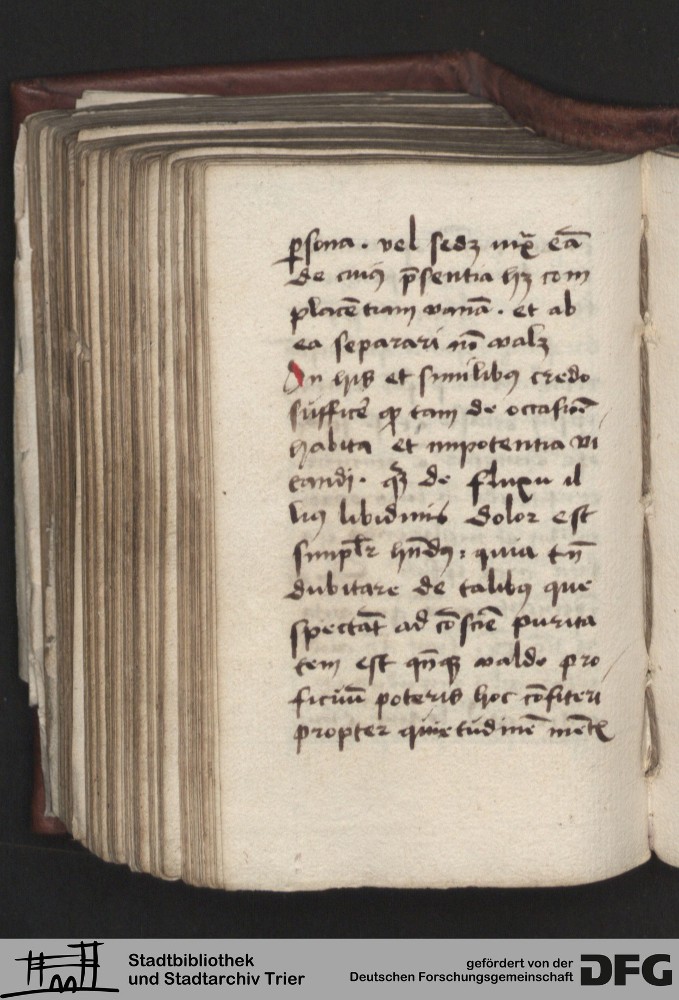 ꝑsona · vel sedꝫ iux̄ eā
de cuiꝯ p̄sentia hꝫ com
placētiam vanā · et ab
ea separari nō valꝫ
In his et similibꝯ credo
sufficē ꝙ tam de occasiōe
habita et impotentia vi
tandi · qͣꝫ de fluxu il
liꝯ libidinis dolor est
simplr̄ hn̄dꝯ : quia tn̄
dubitare de talibꝯ que
spectāt ad cōsciē purita
tem est qn̄qꝫ valde pro
ficuū poteris hoc cōfiteri
propter quietudinē mētꝭ
Stadtbibliothek
und Stadtarchiv Trier
gefördert von der
Deutschen Forschungsgemeinschaft
DFG